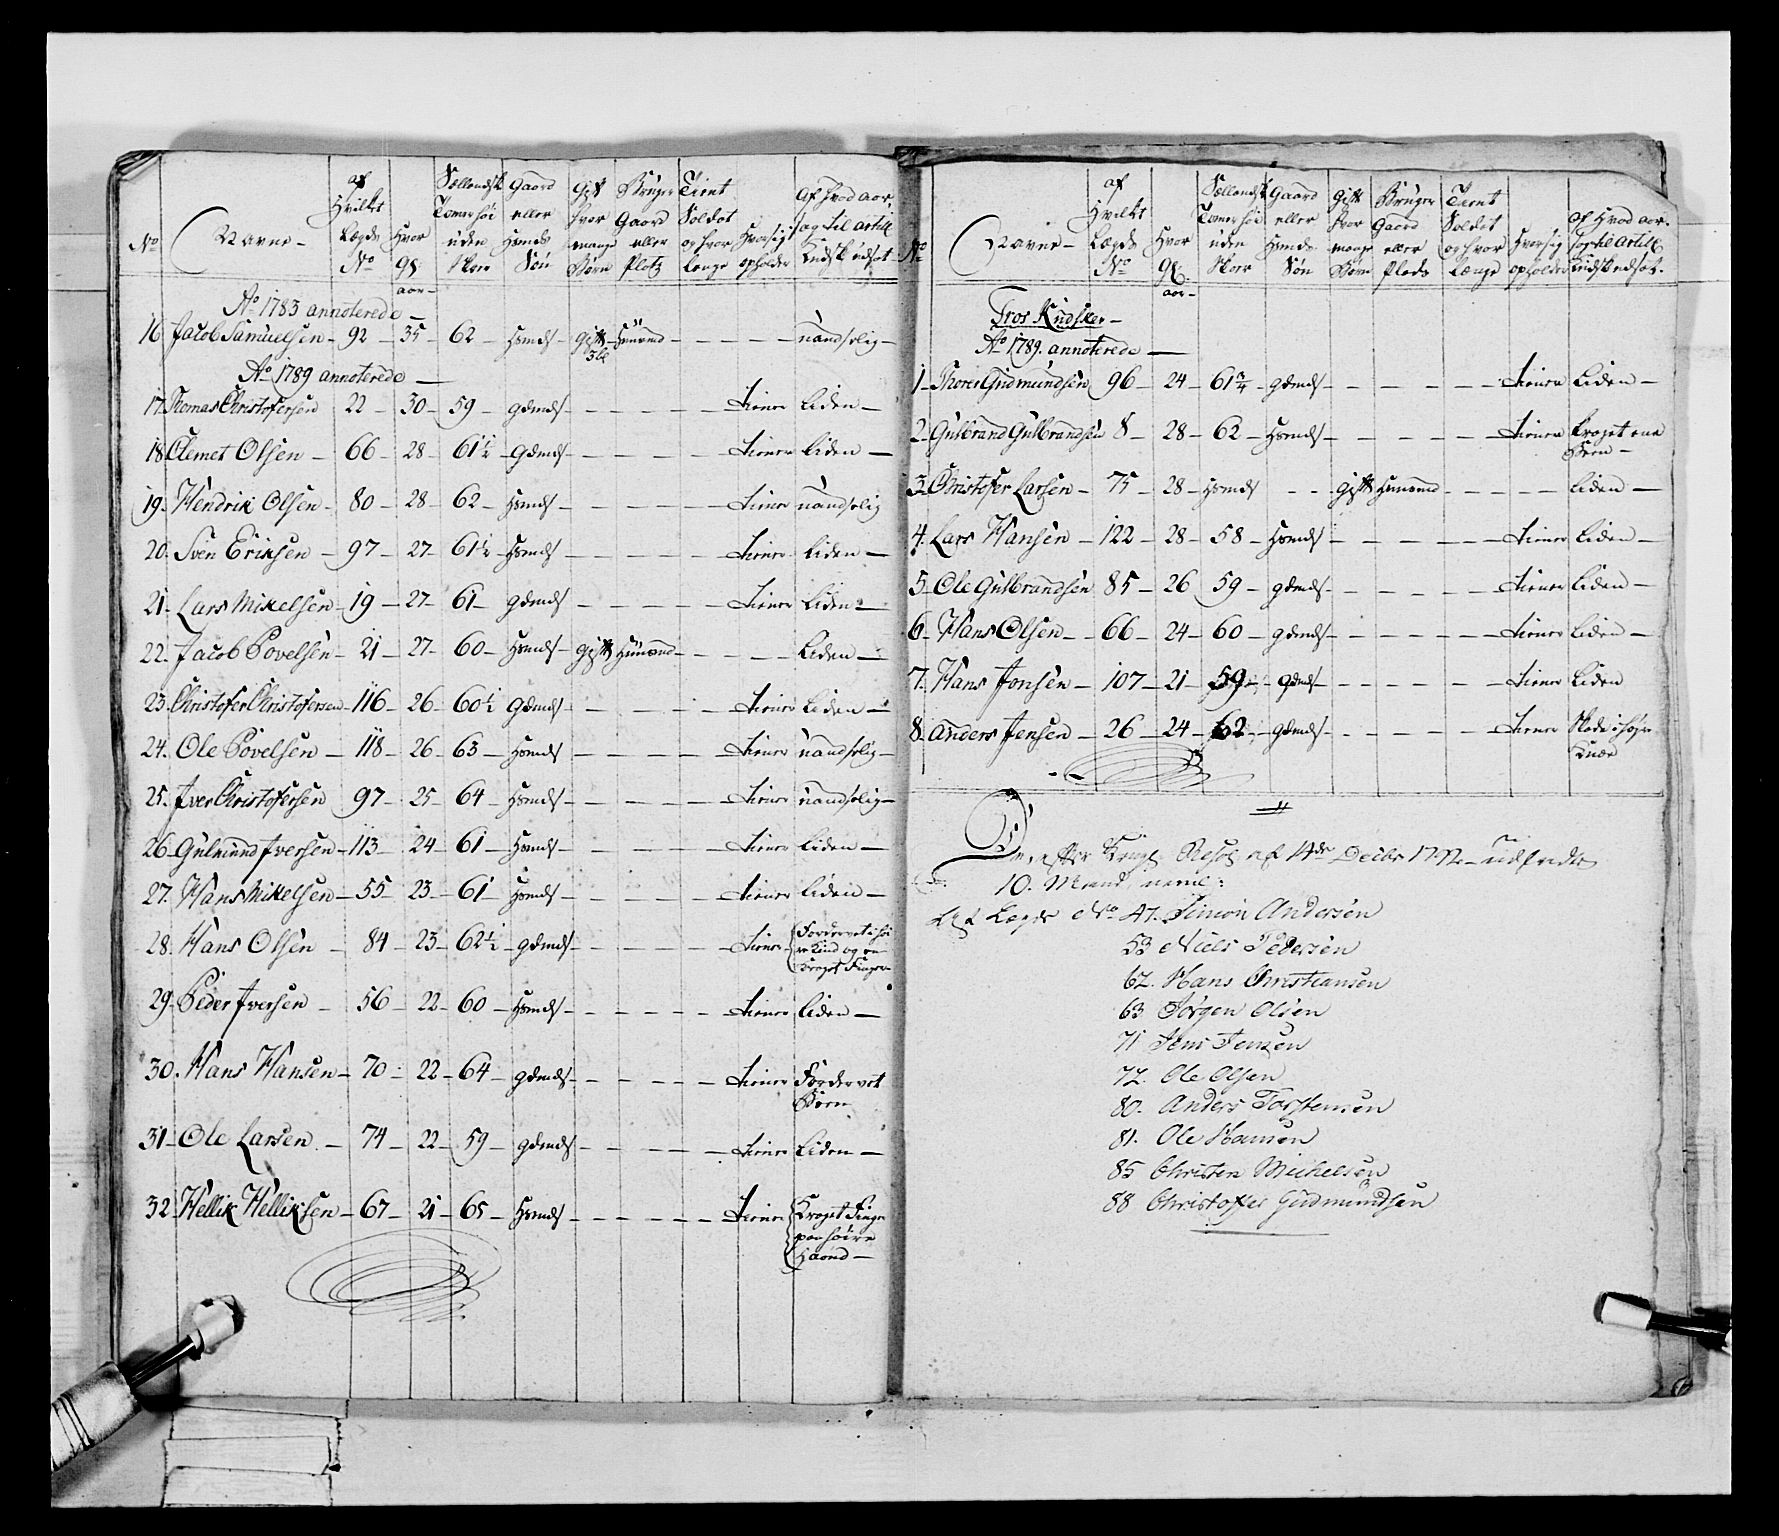 No
Navne
af Hvilket Lægds No
Hvor Gl. aar
Sællandsk Tomer høi uden Skoe
Gaard eller Huusds Søn
Gift hvor mange Børn
Bruger Gaard eller Platz
Tient Soldat og hvor længe
Hvor sig opholder
Af hvad aar
Ao 1783 annoterede
16 Jacob Samuelsen 92 35 62 Hsmds Gift Huusmd uandselig
Ao 1789 annoterede
17 Thomas Christofersen 22 30 59 gdmds tiener liden
18 Clemet Olsen 66 28 61½ Gdmds tiener liden
19 Hendrik Olsen 80 28 62 Hsmds tiener uandselig
20. Sven Eriksen 97 27 61½ Hsmds tiener liden
21. Lars Mikelsen 19 27 61 gdmds tiener liden
22. Jacob Povelsen 21 27 60 Hsmds gift Huusmd liden
23. Christofer Christofersen 116 26 60½ Gdmds tiener liden
24. Ole Povelsen 118 26 63 Hsmds tiener uandselig
25. Iver Christofersen 97 25 64 Hsmds tiener uandselig
26 Gulmund Iversen 113 24 61 Hsmds tiener liden
27. Hans Mikelsen 55 23 61 Hsmds tiener liden
28. Hans Olsen 84 23 62½ gdmds tiener Fordervet i høi
re Kind og en
Kroget Finger
29. Peder Iversen 56 22 60 Hsmds tiener liden
30. Hans Hansen 70 22 64 gdmds tiener Fordervet
Been
31 Ole Larsen 74 22 59 gdmds tiener liden
32 Hellik Helliksen 67 21 65 Hsmds tiener Kroget Finger
paa høire
Haand
No
Navne
af Hvilket Lægds No
Hvor Gl. aar
Sællandsk Tomer høi uden Skoe
Gaard eller Huusds Søn
Gift hvor mange Børn
Bruger Gaard eller Plads
Tient Soldat og hvor Længe
Hvor sig opholder
af Hvad aar.
Tros Kudsker
Ao 1789. annoterede
1 Thorer Gudmundsen 96 24 61¾ gdmds tiener liden
2 Gulbrand Gulbrandsen 8 28 62 Hsmds tiener kroget ene
Been
3 Christofer Larsen 75 28 Hsmds gift Huusmd liden
4. Lars Hansen 122 28 58 Hsmds tiener liden
5 Ole Gulbrandsen 85 26 59 gdmds tiener liden
6 Hans Olsen 66 24 60 gdmds tiener liden
7. Hans Jonsen 107 21 59 gdmds tiener liden
8. Anders Jensen 26 24 62 gdmds tiener Skade i høyre
Knæe
De efter Kongl. Resol. af 14de Decbr 1792 udslædte
10. Mænd, navnl:
Lægds No 47. Simon Andersen
53 Niels Pedersen
62. Hans Christiansen
63 Jørgen Olsen
71 Jens Jensen
72. Ole Olsen
80. Anders Torstensen
81. Ole Hansen
85 Christen Michelsen
88 Christoffer Gudmundsen